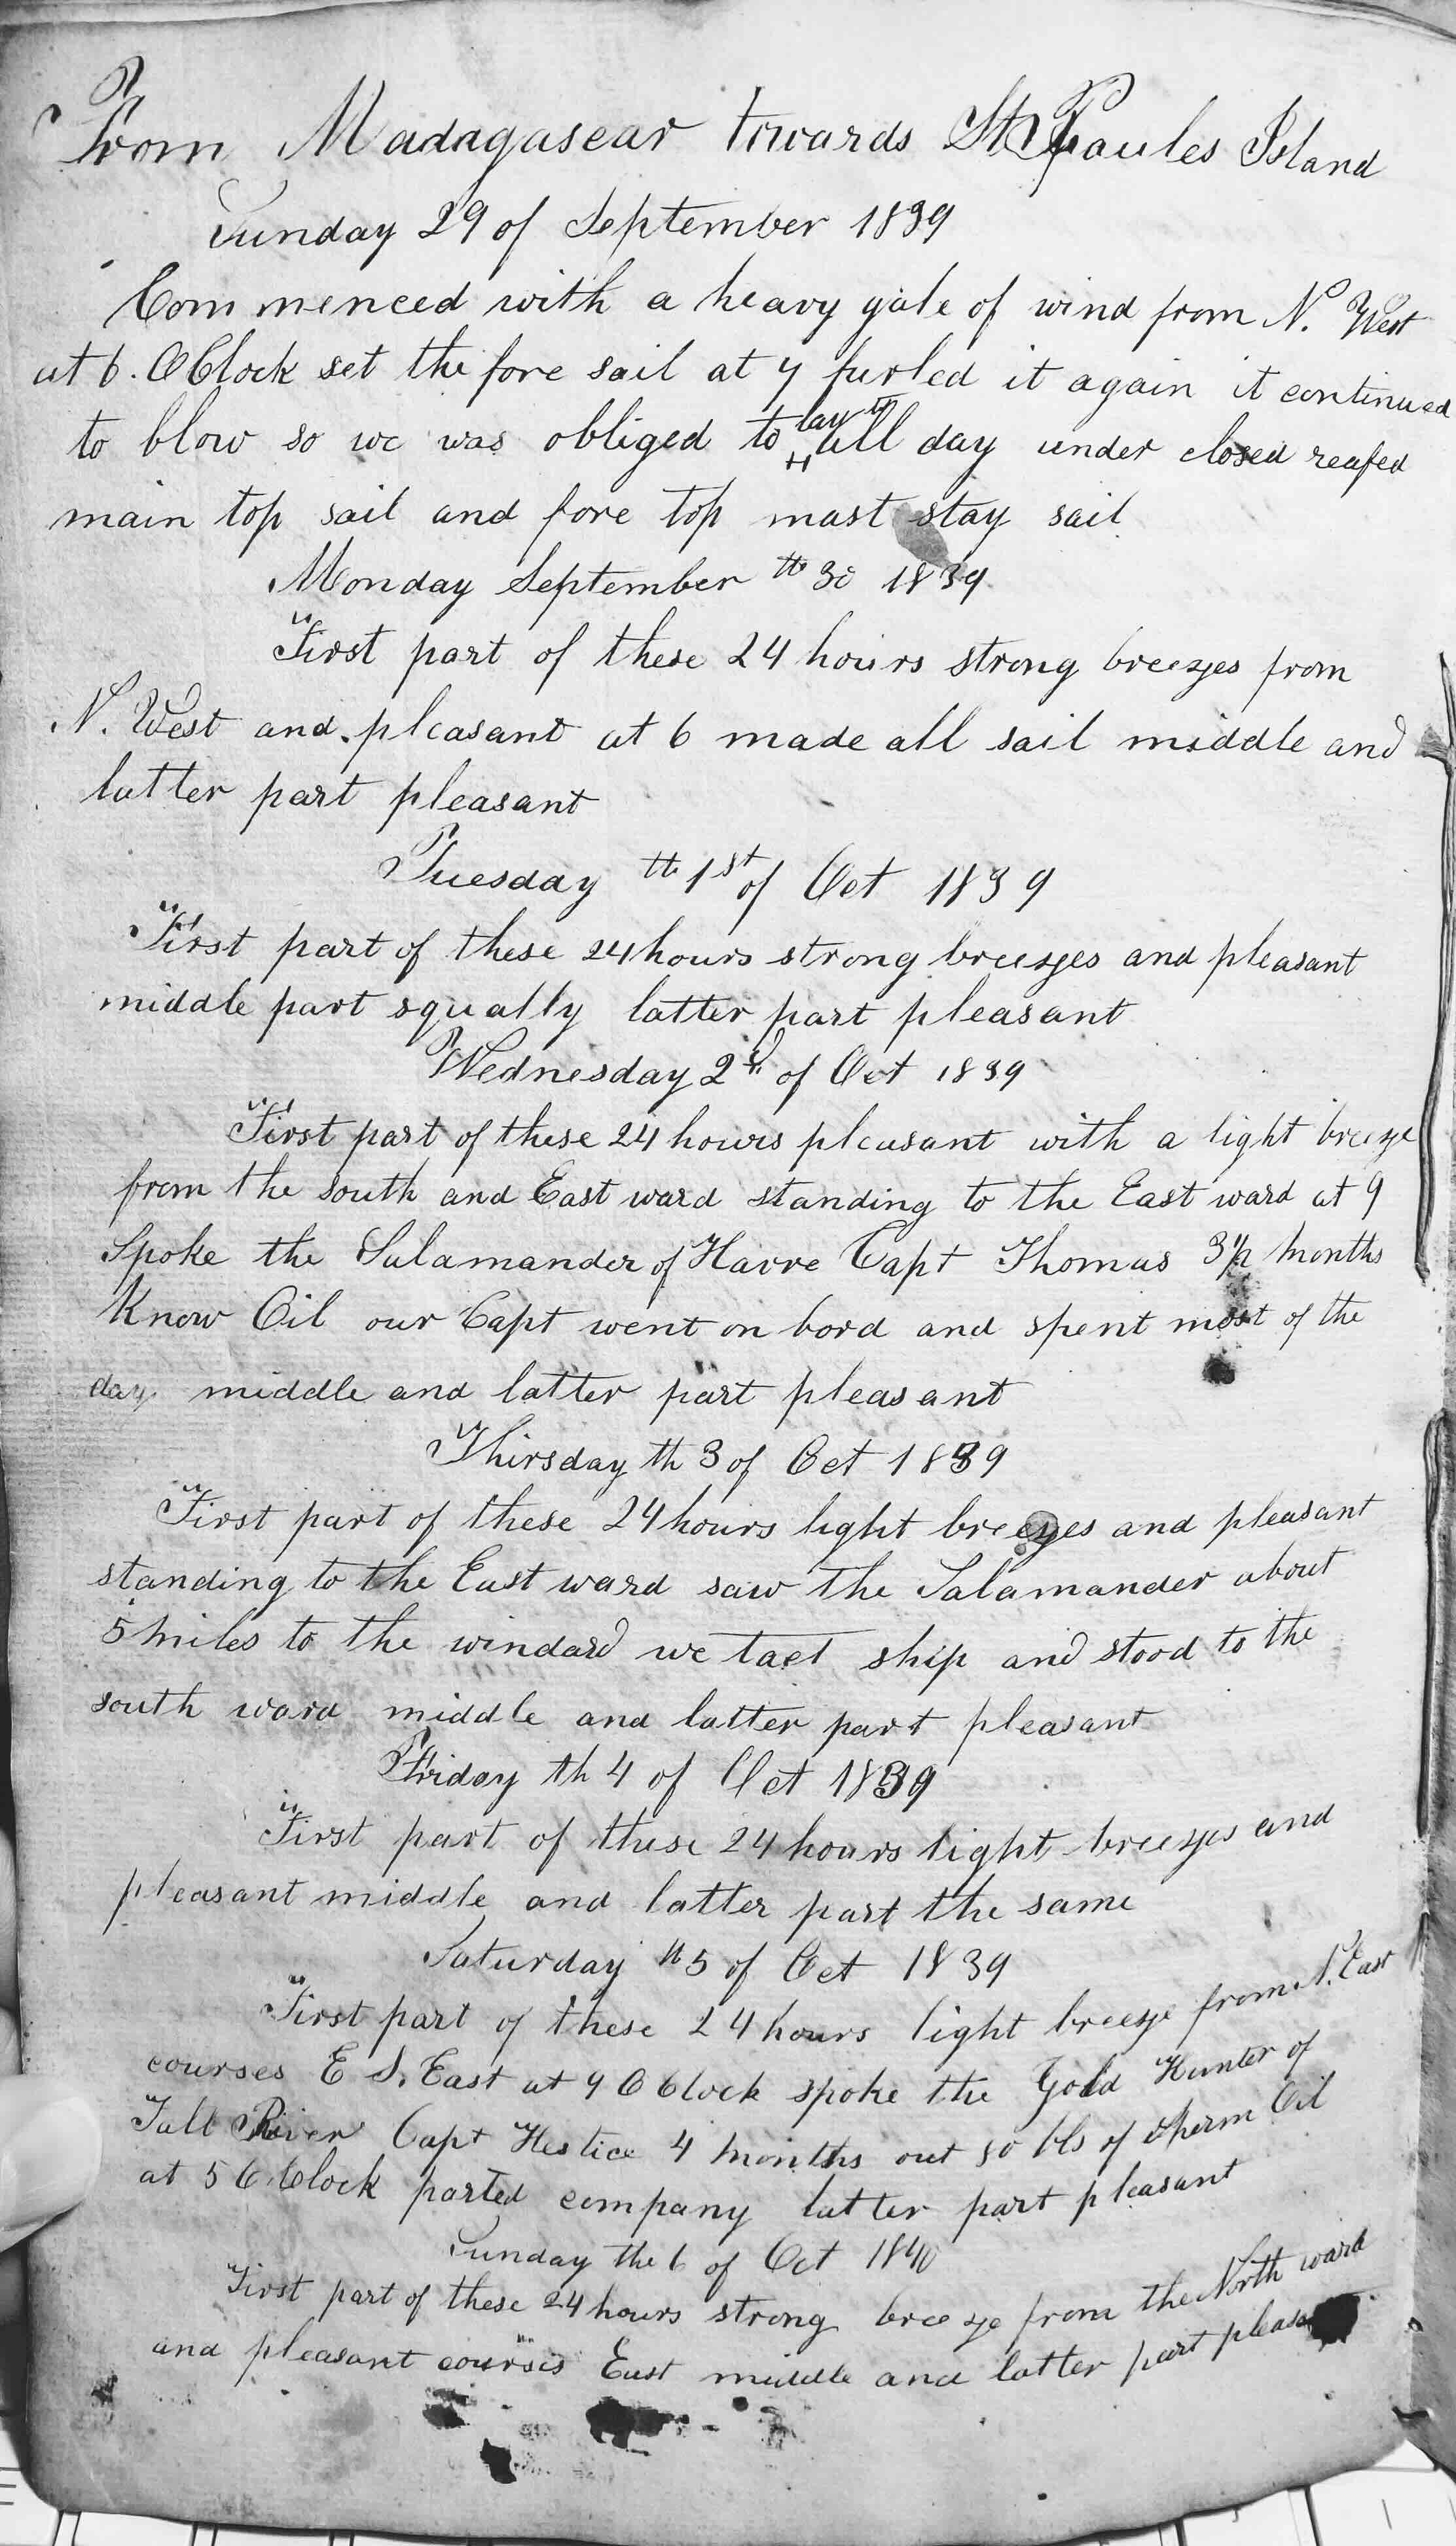 From Madagascar towards St Paules Island
Sunday 29 of September 1839
Commenced with a heavy gale of wind from N. West
at 6. OClock set the fore sail at 7 furled it again it continued
to blow so we was obliged to lay to all day under closed reafed
main top sail and fore top mast stay sail
Monday September th 30 1839
First part of these 24 hours strong breezes from
N. West and pleasant at 6 made all sail middle and
latter part pleasant
Tuesday th 1st of Oct 1839
First part of these 24 hours strong breezes and pleasant
middle part squally latter part pleasant
Wednesday 2d of Oct 1839
First part of these 24 hours pleasant with a light breeze
from the south and East ward standing to the East ward at 9
Spoke the Salamander of Havre Capt Thomas 3 1/2 months
Know Oil our Capt went on bord and spent most of the
day middle and latter part pleasant
Thirsday th 3 of Oct 1839
First part of these 24 hours light breezes and pleasant
standing to the East ward saw the Salamander about
5 miles to the windard we tact ship and stood to the
south ward middle and latter part pleasant
Friday th 4 of Oct 1839
First part of these 24 hours light breezes and
pleasant middle and latter part the same
Saturday th 5 of Oct 1839
First part of these 24 hours light breeze from N. East
courses E S. East at 9 OClock spoke the Gold Hunter of
Fall River Capt 4 months out 80 bls of sperm Oil
at 5 OClock parted company latter part pleasant
Sunday the 6 of Oct 1840
First part of these 24 hours strong breeze from the North ward
and pleasant courses East middle and latter part